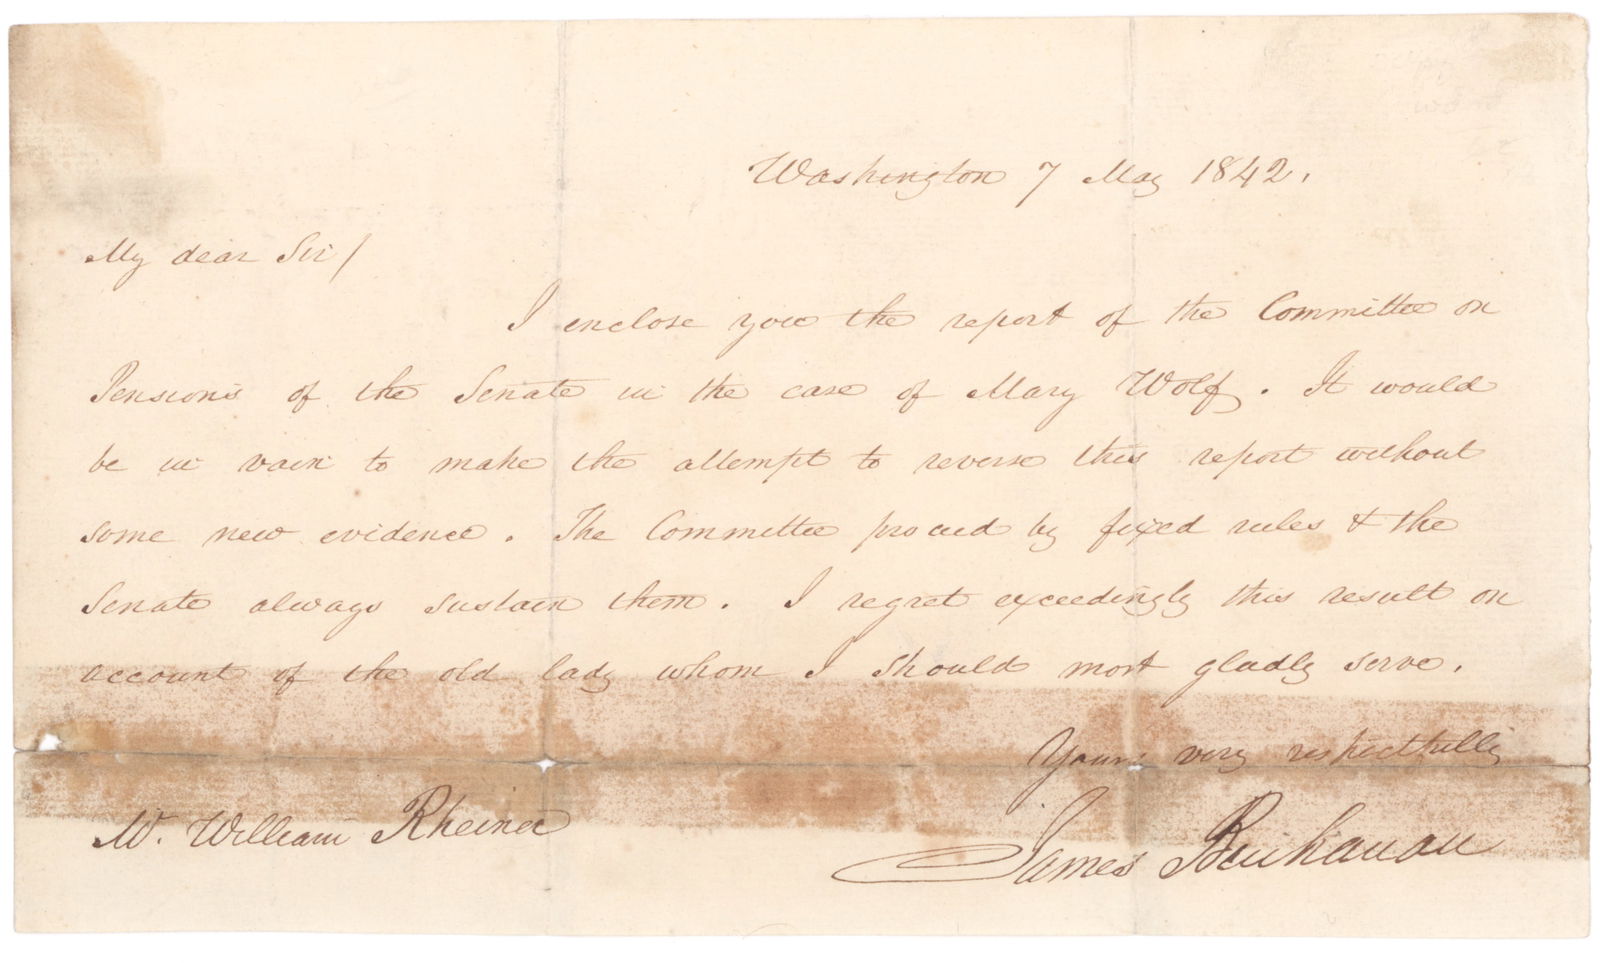 Washington 7 May 1842.
My dear Sir/
I enclose you the report of the Committee on
Pensions of the Senate in the case of Mary Wolf. It would
be in vain to make the attempt to reverse this report without
some new evidence. The Committee proceed by fixed rules & the
Senate always sustain them. I regret exceedingly this result on
account of the old lady whom I should most gladly serve.
Yours very respectfully
James Buchanan
W. William